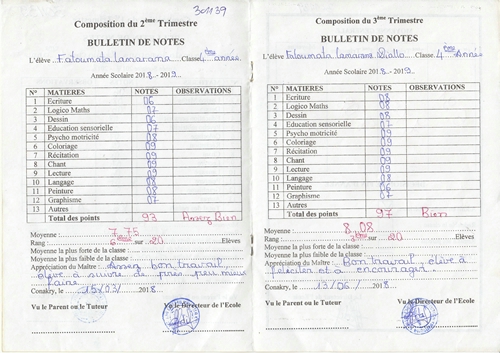 30H39
Composition du 2ème Trimestre
BULLETIN DE NOTES
L'élève Fatoumata lamarana Classe 4ème année
Année Scolaire 2018-2019
N° MATIERES NOTES OBSERVATIONS
1 Ecriture 06
2 Logico Maths 07
3 Dessin 06
4 Education sensorielle 07
5 Psycho motricité 08
6 Coloriage 09
7 Récitation 09
8 Chant 09
9 Lecture 09
10 Langage 08
11 Peinture 08
12 Graphisme 07
13 Autres
Total des points 93 Assez Bien
Moyenne : 7,75
Rang : 6ème sur 20 Elèves
Moyenne la plus forte de la classe :
Moyenne la plus faible de la classe :
Appréciation du Maître : Assez bon travail
élève à suivre de près peu mieux
faire
Conakry, le 15/03/ 2018
Vu le Parent ou le Tuteur Vu le Directeur de l'Ecole
Composition du 3ème Trimestre
BULLETIN DE NOTES
L'élève Fatoumata lamarana Diallo Classe 4ème Année
Année Scolaire 2018-2019
N° MATIERES NOTES OBSERVATIONS
1 Ecriture 08
2 Logico Maths 08
3 Dessin 08
4 Education sensorielle 08
5 Psycho motricité 09
6 Coloriage 09
7 Récitation 09
8 Chant 09
9 Lecture 08
10 Langage 08
11 Peinture 06
12 Graphisme 07
13 Autres
Total des points 97 Bien
Moyenne : 8,08
Rang : sur 20 Elèves
Moyenne la plus forte de la classe :
Moyenne la plus faible de la classe :
Appréciation du Maître : Bon travail élève à
féliciter et à encourager
Conakry, le 13/06 / 2018
Vu le Parent ou le Tuteur Vu le Directeur de l'Ecole